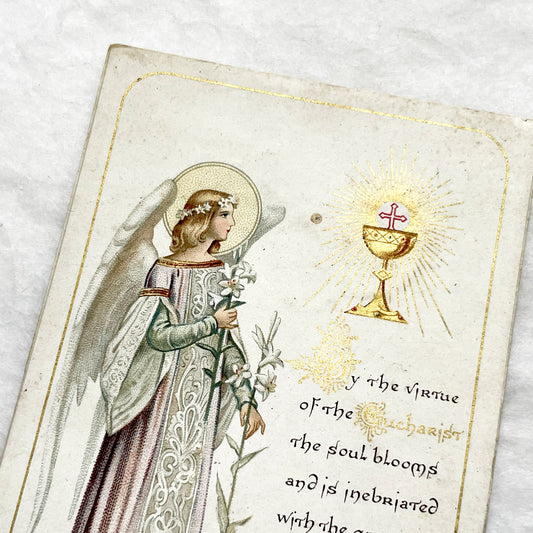 By the virtue
of the Eucharist
the soul blooms
and is inebriated
with the